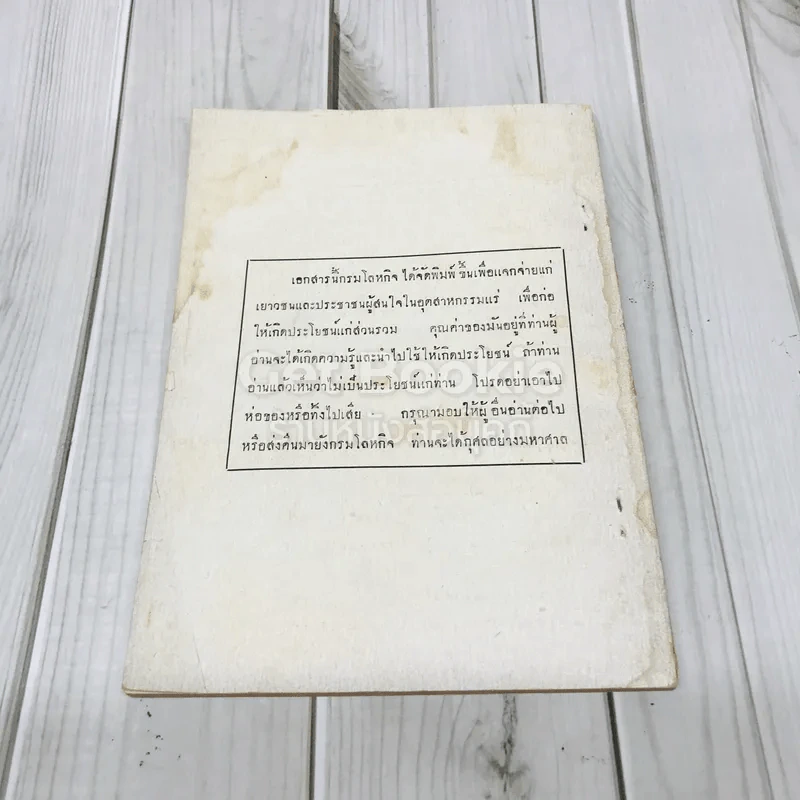 เอกสารนี้กรมโลหกิจ ได้จัดพิมพ์ ขึ้นเพื่อแจกจ่ายแก่
เยาวชนและประชาชนผู้สนใจในอุตสาหกรรมแร่ เพื่อก่อ
ให้เกิดประโยชน์แก่ส่วนรวม คุณค่าของมันอยู่ที่ท่านผู้
อ่านจะได้เกิดความรู้และนำไปใช้ให้เกิดประโยชน์ ถ้าท่าน
อ่านแล้วเห็นว่าไม่เป็นประโยชน์แก่ท่าน โปรดอย่าเอาไป
ห่อของหรือทิ้งไปเสีย กรุณามอบให้ผู้อื่นอ่านต่อไป
หรือส่งคืนมายังกรมโลหกิจ ท่านจะได้กุศลอย่างมหาศาล
Get Bookie